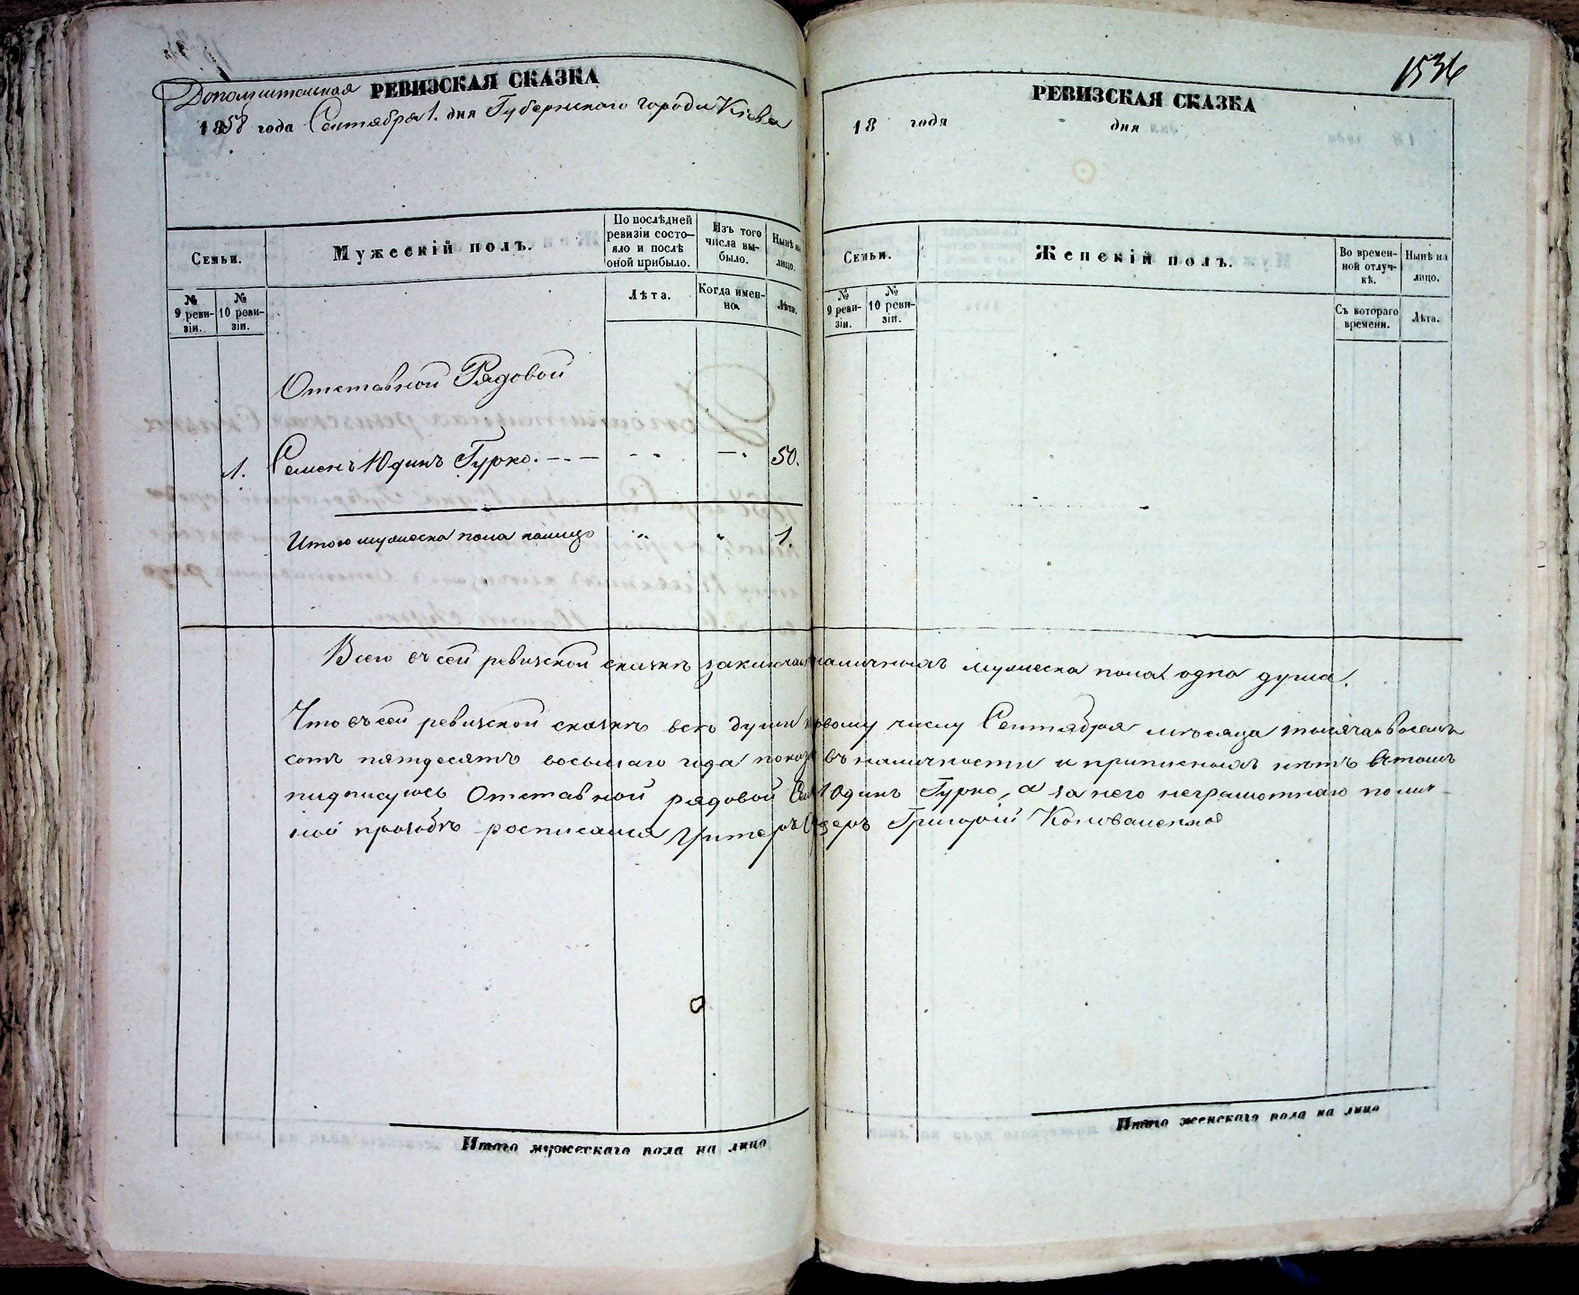 Дополнительная РЕВИЗСКАЯ СКАЗКА
1858 года Сентября 1. дня Губернского города Кіева
Семьи.
Мужескій полъ.
По послѣдней ревизіи состояло и послѣ оной прибыло.
Изъ того числа выбыло.
Нынѣ на лицо.
№ 9 ревизіи.
№ 10 ревизіи.
Лѣта.
Когда именно.
Лѣта.
Отставной Рядовой
1. Семенъ Юдинъ Гурко. 50.
Итого мужеска пола налицо " " 1.
1536
РЕВИЗСКАЯ СКАЗКА
18 года дня
Семьи.
Женскій полъ.
Во временной отлучкѣ.
Нынѣ на лицо.
№ 9 ревизіи.
№ 10 ревизіи.
Съ котораго времени.
Лѣта.
Всего въ сей ревизской сказкѣ наличныхъ мужеска пола одна душа.
Что въ сей ревизской сказкѣ всѣ души первому числу Сентября мѣсяца тысяча восемь
сотъ пятдесятъ восьмаго года въ наличности и приписныхъ нѣтъ въ томъ
подписуюсь Отставной рядовой Юдинъ Гурко, а за него неграмотнаго по лич-
ной прозьбѣ росписался Григорій
Итого мужескаго пола на лицо
Итого женскаго пола на лицо